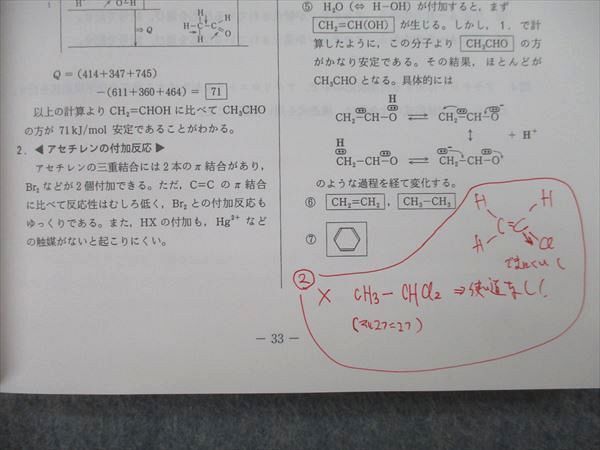 Q
H－C－C
Q = (414+347+745)
－(611+360+464) = 71
以上の計算より CH₂=CHOH に比べて CH₃CHO
の方が 71kJ/mol 安定であることがわかる。
2. ◀ アセチレンの付加反応 ▶
アセチレンの三重結合には2本のπ結合があり，
Br₂ などが2個付加できる。ただ，C=C の π結合
に比べて反応性はむしろ低く，Br₂ との付加反応も
ゆっくりである。また，HX の付加も，Hg²⁺ など
の触媒がないと起こりにくい。
⑤ H₂O (⇔ H－OH) が付加すると，まず
CH₂=CH(OH) が生じる。しかし，1．で計
算したように，この分子より CH₃CHO の方
がかなり安定である。その結果，ほとんどが
CH₃CHO となる。具体的には
H
CH₂－CH－O ⇌ CH₂－CH－O⁻
＋ H⁺
H
CH₂－CH－O ⇌ CH₂－CH－O
のような過程を経て変化する。
⑥ CH₂=CH₂ , CH₃－CH₃
⑦
H H
C=C
H Cl
できにくい
②
× CH₃－CHCl₂ ⇒ 使い道なし!
－ 33 －